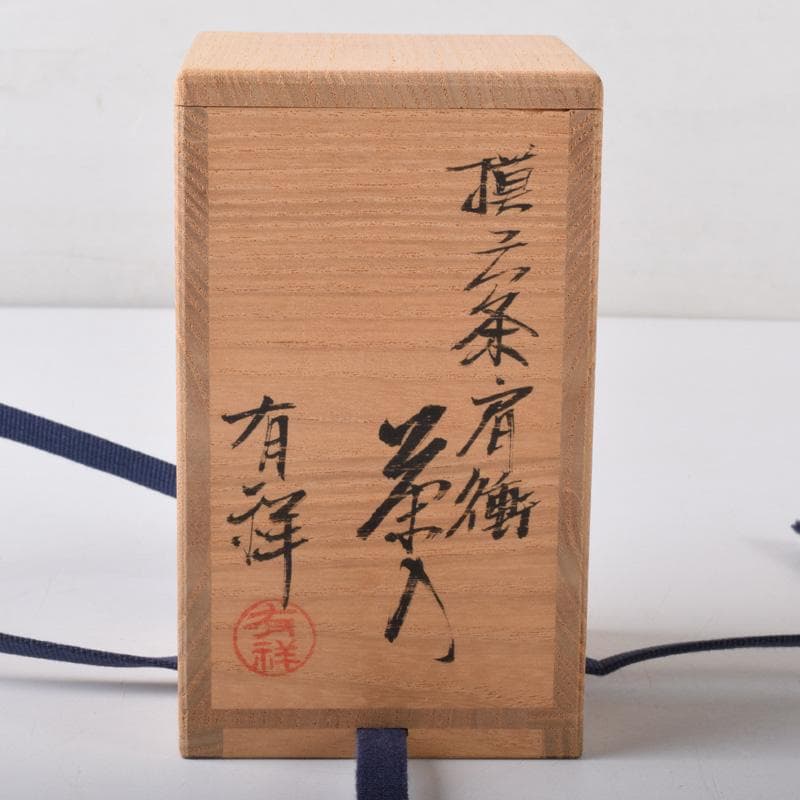 摸六条肩衝
茶入
有祥
有祥